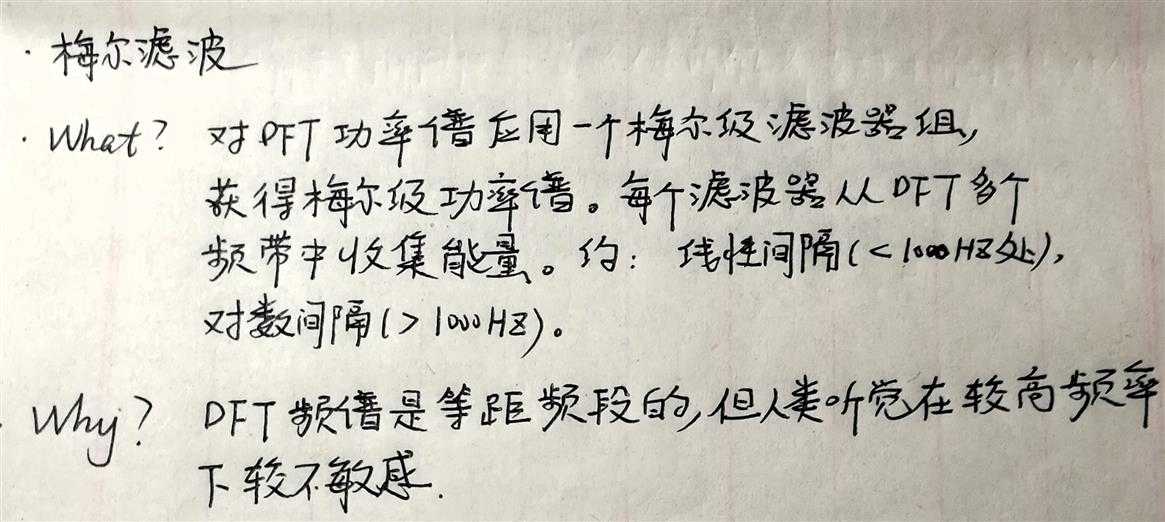 · 梅尔滤波
· What? 对DFT功率谱应用一个梅尔级滤波器组,
获得梅尔级功率谱。每个滤波器从DFT多个
频带中收集能量。约: 线性间隔(<1000HZ处),
对数间隔(>1000HZ)。
· Why? DFT频谱是等距频段的,但人类听觉在较高频率
下较不敏感.